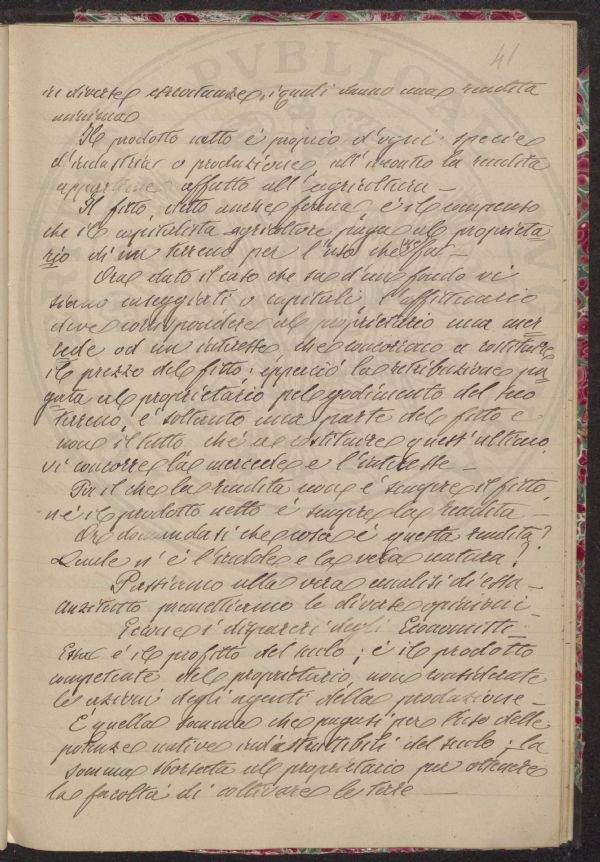 41
in diverse circostanze, i quali danno una rendita
minima
Il prodotto netto è proprio d'ogni specie
d'industria o produzione all'incontro la rendita
appartiene affatto all'agricoltura —
Il fitto, detto anche ferma è il compenso
che il capitalista agricoltore paga al proprieta-
rio di un terreno per l'uso che ne fa —
Ora dato il caso che su d'un fondo vi
siano caseggiati o capitali l'affittuario
deve corrispondere al proprietario una mer-
cede od un interesse, che concorrano a costituire
il prezzo del fitto; epperciò la retribuzione pa-
gata al proprietario pel godimento del suo
terreno, è soltanto una parte del fitto e
non il tutto, chè a costituire quest'ultimo
vi concorre la mercede e l'interesse —
Per il che la rendita non è sempre il fitto
nè il prodotto netto è sempre la rendita —
Or domandasi che cosa è questa rendita?
Quale n'è l'indole e la vera natura?
Passiamo alla vera analisi di essa —
Anzitutto premettiamo le diverse opinioni —
Econe i dispareri degli Economisti —
Essa è il profitto del suolo; è il prodotto
competente del proprietario, non considerate
le azioni degli agenti della produzione —
È quella somma che pagasi per l'uso delle
potenze native indistruttibili del suolo; la
somma sborsata al proprietario per ottenere
la facoltà di coltivare le terre —
PVBLICA